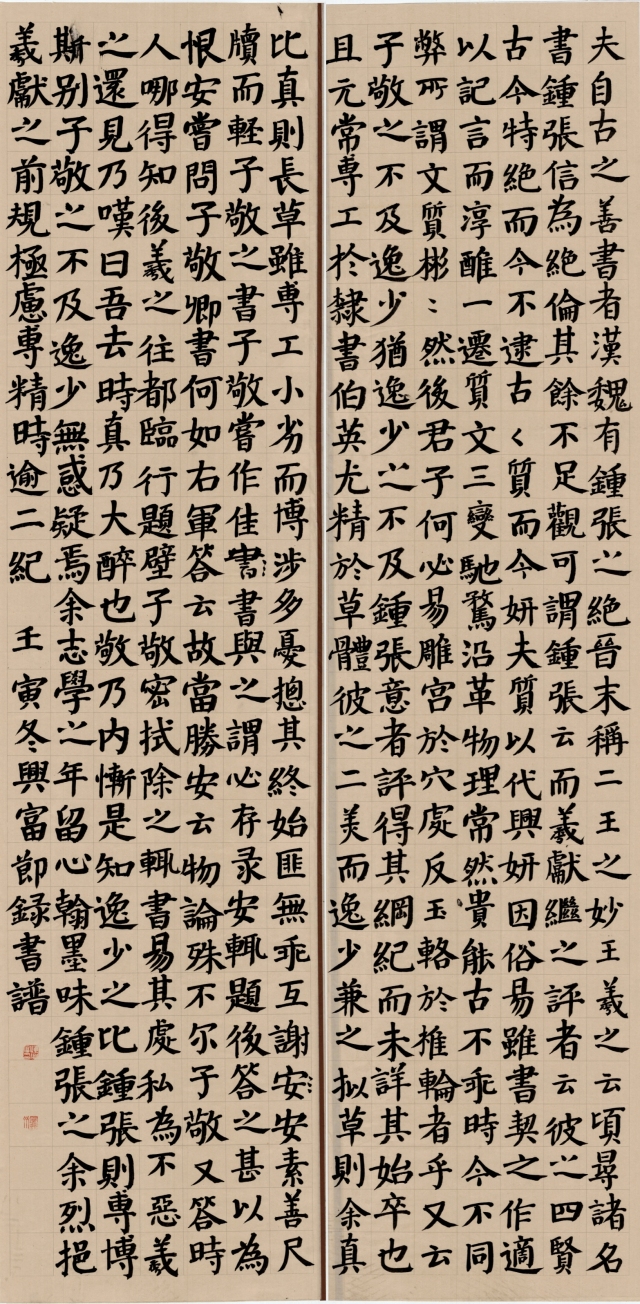 夫自古之善書者漢魏有鍾張之絶晉末稱二王之妙王羲之云頃尋諸名
書鍾張信為絶倫其餘不足觀可謂鍾張云而羲獻繼之評者云彼之四賢
古今特絶而今不逮古〻質而今妍夫質以代興妍因俗易雖書契之作適
以記言而淳醨一遷質文三變馳騖沿革物理常然貴能古不乖時今不同
弊所謂文質彬〻然後君子何必易雕宮於穴處反玉輅於椎輪者乎又云
子敬之不及逸少猶逸少之不及鍾張意者評得其綱紀而未詳其始卒也
且元常專工於隸書伯英尤精於草體彼之二美而逸少兼之拟草則余真
比真則長草雖專工小劣而博涉多憂摠其終始匪無乖互謝安安素善尺
牘而輕子敬之書子敬嘗作佳書書與之謂必存录安輒題後答之甚以為
恨安嘗問子敬卿書何如右軍答云故當勝安云物論殊不尔子敬又答時
人哪得知後羲之往都臨行題壁子敬密拭除之輒書易其處私為不惡羲
之還見乃嘆曰吾去時真乃大醉也敬乃内慚是知逸少之比鍾張則專博
斯别子敬之不及逸少無惑疑焉余志學之年留心翰墨味鍾張之余烈挹
羲獻之前規極慮專精時逾二紀 壬寅冬興富節録書譜